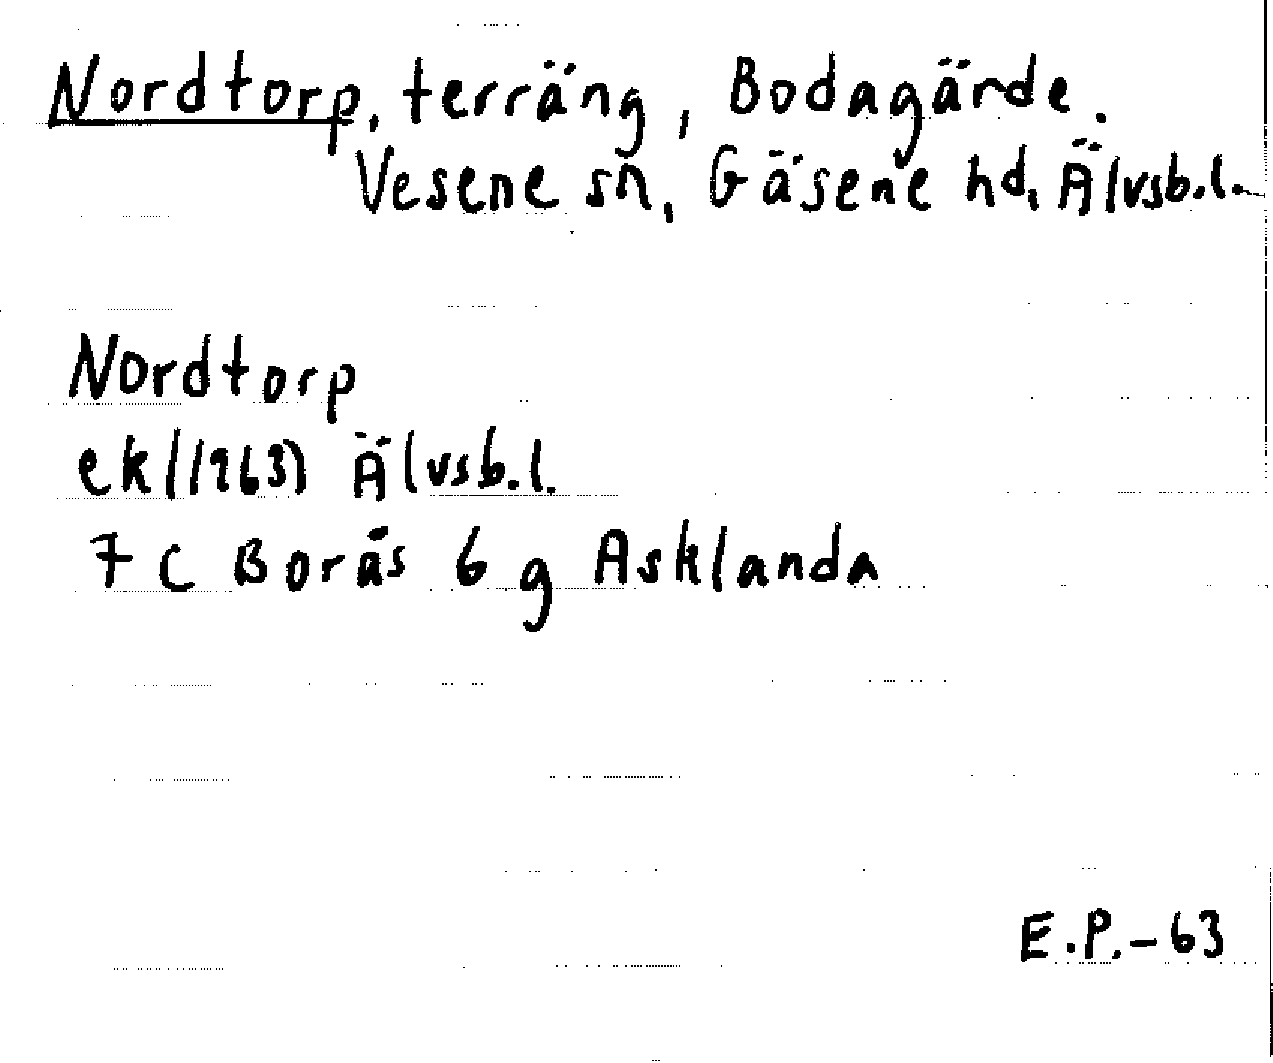 Nordtorp, terräng, Bodagärde.
Vesene sn, Gäsene hd, Älvsb.l.
Nordtorp
ek (1963) Älvsb.l.
7 C Borås 6 g Asklanda
E.P.-63